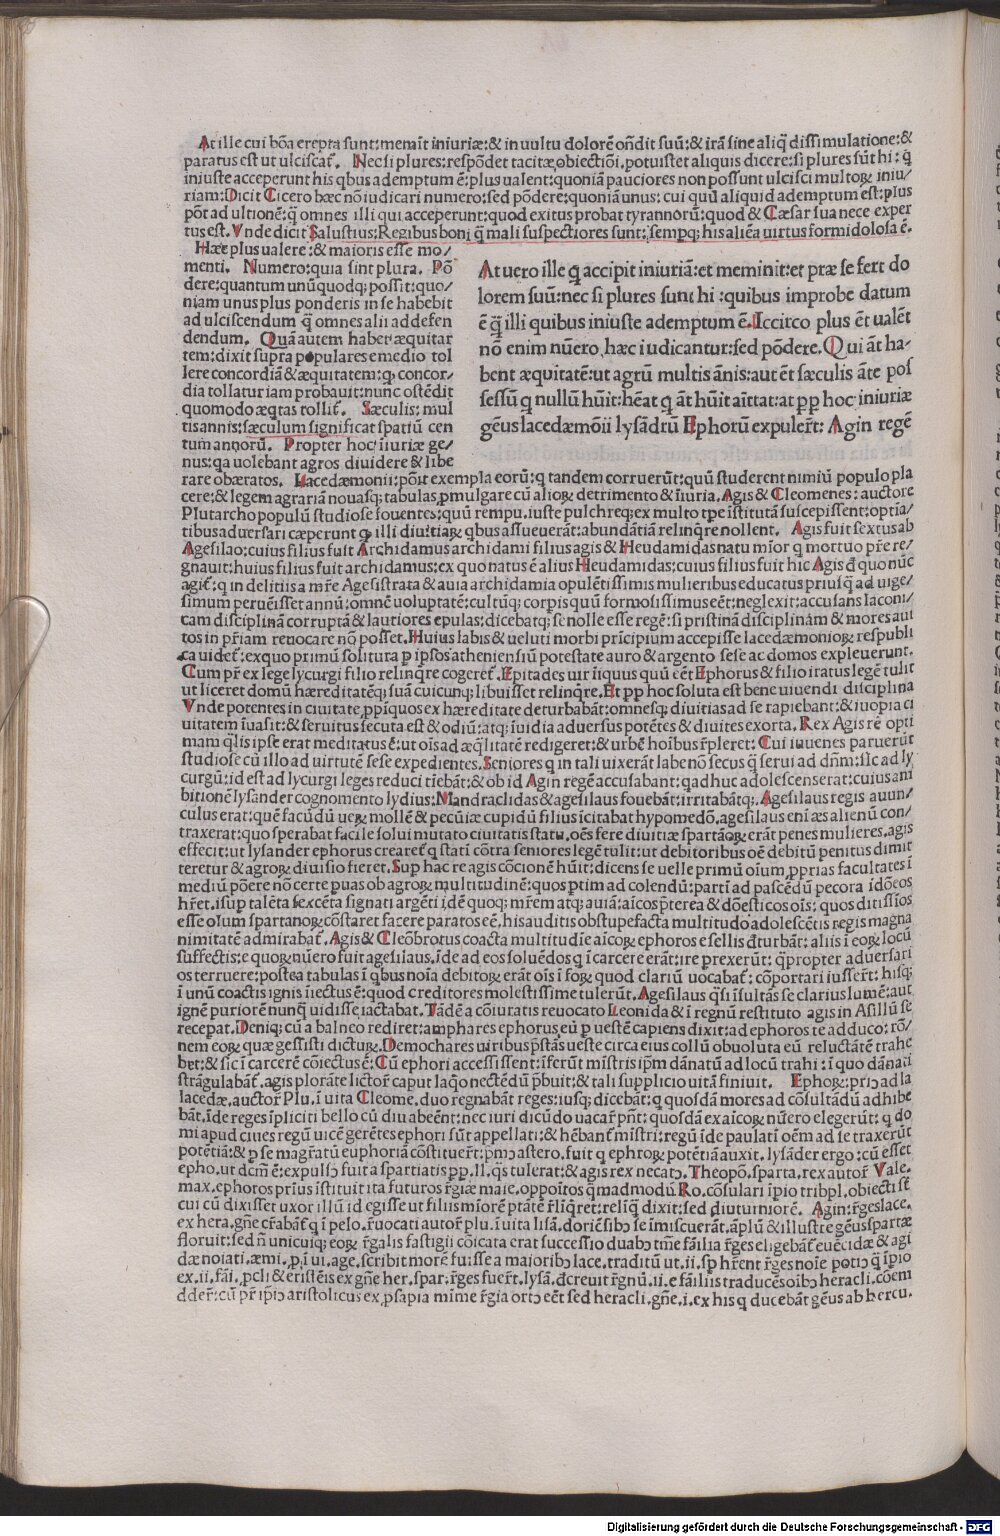 At ille cui bōa erepta sunt: memīt iniuriæ: & in uultu dolorē oñdit suū: & irā sine aliq̄ dissimulatione: &
paratus est ut ulciscat̄. Nec si plures: respōdet tacitæ obiectiōi, potuisset aliquis dicere: si plures sūt hi: q̄
iniuste acceperunt his qbus ademptum ē: plus ualent: quoniā pauciores non possunt ulcisci multoꝝ iniu/
riam: Dicit Cicero hæc nō iudicari numero: sed pōdere: quoniā unus: cui quū aliquid ademptum est: plus
pōt ad ultionē: q̄ omnes illi qui acceperunt: quod exitus probat tyrannorū: quod & Cæsar sua nece exper
tus est. Vnde dicit Salustius: Regibus boni q̄ mali suspectiores sunt: sempq; his aliēa uirtus formidolosa ē.
Hæc plus ualere: & maioris esse mo/
menti. Numero: quia sint plura. Pō
dere: quantum unūquodq; possit: quo/
niam unus plus ponderis in se habebit
ad ulciscendum q̄ omnes alii ad defen
dendum. Quā autem habet æquitar
tem: dixit supra populares e medio tol
lere concordiā & æquitatem: q̨ concor/
dia tollatur iam probauit: nunc ostēdit
quomodo æqtas tollit̄. Sæculis: mul
tis annis: sæculum significat spatiū cen
tum annorū. Propter hoc iīuriæ ge/
nus: qa uolebant agros diuidere & libe
At uero ille q̨ accipit iniuriā: et meminit: et præ se fert do
lorem suū: nec si plures sunt hi: quibus improbe datum
ē q̄ illi quibus iniuste ademptum ē. Iccirco plus ēt ualēt
nō enim nūero hæc iudicantur: sed pōdere. Qui āt ha-
bent æquitatē: ut agrū multis ānis: aut ēt sæculis āte pos
sessū q nullū hūit: hēat q āt hūit aīttat: at pp hoc iniuriæ
gēus lacedæmōii lysādrū Ephorū expuler̄t: Agin regē
rare obæratos. Lacedæmonii: pōit exempla eorū: q tandem corruerūt: quū studerent nimiū populo pla
cere: & legem agrariā nouasq; tabulas, pmulgare cū alioꝝ detrimento & iīuria. Agis & Cleomenes: auctore
Plutarcho populū studiose fouentes: quū rempu. iuste pulchreq; ex multo tpe īstitutā suscepissent: optia/
tibus aduersari cæperunt q̨ illi diuitiaꝝ qbus assueuerāt: abundātiā relinqre nollent. Agis fuit sextus ab
Agesilao: cuius filius fuit Archidamus archidami filius agis & Heudamidas natu mīor q mortuo pr̄e re/
gnauit: huius filius fuit archidamus: ex quo natus ē alius Heudamidas: cuius filius fuit hic Agis d̄ quo nūc
agit̄: q in delitiis a mr̄e Agesistrata & auia archidamia opulētissimis mulieribus educatus priusq̄ ad uige/
simum peruēisset annū: omnē uoluptatē: cultūq; corpis quū formosissimus eēt: neglexit: accusans laconi/
cam disciplinā corruptā & lautiores epulas: dicebatq; se nolle esse regē: si pristinā disciplinām & mores aut
tos in pr̄iam reuocare nō posset. Huius labis & ueluti morbi prīcipium accepisse lacedæmonioꝝ respubli
ca uidet̄: ex quo primū solitura p ipsos atheniensiū potestate auro & argento sese ac domos expleuerunt.
Cum pr̄ ex lege lycurgi filio relinqre cogeret̄. Epitades uir īiquus quū eēt Ephorus & filio iratus legē tulit
ut liceret domū hæreditatēq; suā cuicunq; libuisset relinqre. Et pp hoc soluta est bene uiuendi disciplina
Vnde potentes in ciuitate, ppīquos ex hæreditate deturbabāt: omnesq; diuitias ad se rapiebant: & iuopia ci
uitatem īuasit: & seruitus secuta est & odiū: atq; īuidia aduersus potētes & diuites exorta. Rex Agis rē opti
mam q̄lis ipse erat meditatus ē: ut oīs ad æqlitatē redigeret: & urbē hoībus r̄pleret: Cui iuuenes paruerūt
studiose cū illo ad uirtutē sese expedientes. Seniores q in tali uixerāt labe nō secus q̄ serui ad dn̄m: sīc ad ly
curgū: id est ad lycurgi leges reduci tīebāt: & ob id Agin regē accusabant: q adhuc adolescens erat: cuius ani
bitionē lysander cognomento lydius: Mandraclidas & agesilaus fouebāt: irritabātq;. Agesilaus regis auun/
culus erat: quē facūdū ueꝝ mollē & pecūiæ cupidū filius īcitabat hypomedō. agesilaus eni æs alienū con/
traxerat: quo sperabat facile solui mutato ciuitatis statu, oēs fere diuitiæ spartāoꝝ erāt penes mulieres. agis
effecit: ut lysander ephorus crearet̄ q stati cōtra seniores legē tulit: ut debitoribus oē debitū penitus dimit
teretur & agroꝝ diuisio fieret. Sup hac re agis cōcionē hūit: dicens se uelle primū oīum, pprias facultates ī
mediū pōere nō certe puas ob agroꝝ multitudinē: quos ptim ad colendū: partī ad pascēdū pecora idōeos
hr̄et. isup talēta sexcēta signati argēti idē quoq; mr̄em atq; auiā: aīcos p̄terea & dōesticos oīs: quos ditissīos
esse olum spartanoꝝ cōstaret facere paratos eē. his auditis obstupefacta multitudo adolescētis regis magna
nimitatē admirabat̄. Agis & Cleōbrotus coacta multitudīe aīcoꝝ ephoros e sellis d̄turbāt: aliis ī eoꝝ locū
suffectis: e quoꝝ nūero fuit agesilaus. īde ad eos soluēdos q ī carcere erāt: ire prexerūt: q̄propter aduersari
os terruere: postea tabulas ī qbus noīa debitoꝝ erāt oīs ī foꝝ quod clariū uocabat̄: cōportari iusser̄t: hisq;
ī unū coactis ignis īiectus ē: quod creditores molestissime tulerūt. Agesilaus q̄si īsultās se clarius lumē: aut
ignē puriorē nunq̄ uidisse iactabat. Tādē a cōiuratis reuocato Leonida & ī regnū restituto agis in Asillū se
recepat. Deniq; cū a balneo rediret: amphares ephorus eū p uestē capiens dixit: ad ephoros te adduco: rō/
nem eoꝝ quæ gessisti dictuꝝ. Demochares uiribus p̄stās ueste circa eius collū obuoluta eū reluctātē trahe
bet: & sic ī carcerē cōiectus ē: Cū ephori accessissent: īferūt mīstris ip̄m dānatū ad locū trahi: ī quo dānati
strāgulabāt̄. agis plorāte lictor̄ caput laq̄o nectēdū p̄buit: & tali supplicio uitā finiuit. Ephoꝝ: priɔ ad la
lacedæ. auctor̄ Plu. ī uita Cleomē. duo regnabāt reges: iusq; dicebāt: q quosdā mores ad cōsultādū adhibe
bāt. īde reges īpliciti bello cū diu abeēnt: nec iuri dicūdo uacar̄ pn̄t: quosdā ex aīcoꝝ nūero elegerūt: q do
mi apud ciues regū uicē gerētes ephori sūt appellati: & hēbant̄ mīstri: regū īde paulatī oēm ad se traxerūt
potētiā: & p se magr̄atū euphoriā cōstituer̄t: p̄mɔ astero. fuit q ephroꝝ potētiā auxit. lysāder ergo: cū esset
epho. ut dcm̄ ē: expulsɔ fuit a spartiatis pp. ll. qs tulerat: & agis rex necatɔ. Theopō. sparta. rex autor̄ Vale.
max. ephoros pr̄ius īstituit ita futuros r̄giæ maie. oppoītos q̄madmodū Ro. cōsulari īpio tribpl. obiecti sē
cui cū dixisset uxor illū id egisse ut filiis mīorē ptātē r̄līqret: reliq dixit: sed diuturniorē. Agin: r̄ges lace.
ex hera. gn̄e cr̄abāt̄ q ī pelo. r̄uocati autor̄ plu. ī uita lisā. doriēsibɔ se īmiscuerāt. āplū & illustre gēus spartæ
floruit: sed n̄ unicuiq; eoꝝ r̄galis fastigii cōicata erat successio duabɔ tm̄e fāilia r̄ges eligebāt̄ euēcidæ & agi
dæ noīati. æmi. p. ī ui. age. scribit more fuisse a maioribɔ lace. traditū ut. ii. sp hr̄ent r̄ges noīe potiɔ q̄ īpio
ex. ii. fāi. pcli & eristēis ex gn̄e her. spar. r̄ges fuer̄t. lysā. d̄creuit r̄gnū. ii. e fāiliis traducēs oībɔ heracli. cōem
dder̄: cū pr̄ ip̄iɔ aristolicus ex, psapia mīme r̄gia ortɔ eēt sed heracli. gn̄e. i. ex his q ducebāt gēus ab hercu.
Digitalisierung gefördert durch die Deutsche Forschungsgemeinschaft - DFG